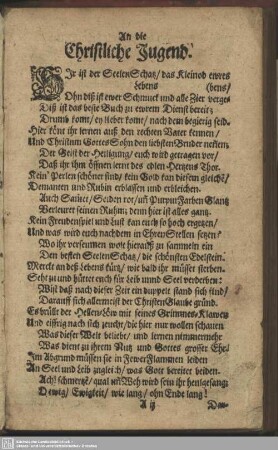 An die
Christliche Jugend.
Hier ist der Seelen Schatz / das Kleinod ewres
Lebens (bens /
Ohn diß ist ewer Schmuck und alle Zier verge-
Diß ist das beste Buch zu ewrem Dienst bereit;
Drumb komt / ey lieber komt / nach dem begierig seid.
Hier könt ihr lernen auß den rechten Vater kennen /
Und Christum Gottes Sohn den liebsten Bruder nennen,
Der Geist der Heiligung / euch wird getragen vor /
Daß ihr ihm öffnen lernt des edlen Hertzens Thor.
Kein Perlen schöner sind / kein Gold kan diesem gleiche /
Demanten und Rubin erblassen und erbleichen.
Auch Sammet / Seiden vor / uñ Purpur Farben Glantz
Verleuret seinen Ruhm; denn hier ist alles gantz.
Kein Freudenspiel und Lust kan euch so hoch ergetzen /
Und was wird euch nachdem in Ehren Stellen setzen?
Wo ihr verseumen wolt hierauß zu sammeln ein
Den besten Seelen Schatz / die schönsten Edelstein.
Merckt an deß Lebens kürtz / wie bald ihr müsset sterben.
Seht zu und hütet euch für Leib und Seel verderben:
Wist daß nach dieser Zeit ein duppelt stand sich find /
Darauff sich allermeist der Christen Glaube gründ.
Es hüllt der Hellen-Löw mit seines Grimmes-Klawen
Und eiffrig nach sich zeucht / die hier nur wollen schauen
Was dieser Welt beliebt / und lernen nimmermehr
Was dient zu ihrem Nutz und Gottes grosser Ehr.
Im Abgrund müssen sie in Fewer Flammen leiden
An Seel und Leib zugleich / was Gott bereitet beiden.
Ach! schmertz / qual uñ Weh wird sein ihr heulgesang:
O ewig / Ewigkeit / wie lang / ohn Ende lang!
A ij Den-